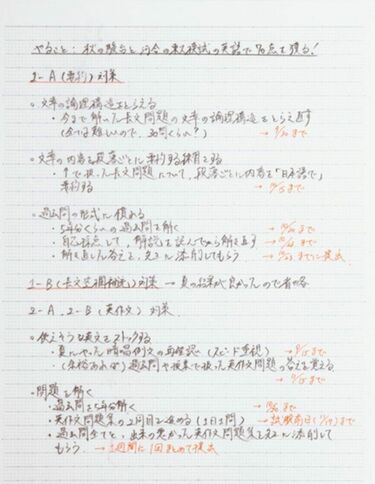 やること：秋の駿台と河合の東大模試の英語で70点を獲る！
1-A（要約）対策
○文章の論理構造をとらえる
・今まで解いた長文問題の文章の論理構造をとらえ直す
（全ては難しいので、30問くらい？） → までに
○文章の内容を段落ごとに要約する練習をする
・↑で扱った長文問題について、段落ごとに内容を「日本語で」
要約する → まで
○過去問の形式に慣れる
・5年分くらいの過去問を解く → まで
・自己採点して、解説を読んでから解き直す → まで
・解き直した答えを、先生に添削してもらう → までに提出
1-B（長文空所補充）対策 → 夏の結果が良かったので省略
2-A、2-B（英作文）対策
○使えそうな英文をストックする
・夏にやった暗唱例文の再確認（スピード重視） → まで
・（余裕あれば）過去問や授業で扱った英作文問題の答えを覚える
→ まで
○問題を解く
・過去問を5年分解く → まで
・英作文問題集の2周目を進める（1日1問） → 試験前日 まで
・過去問全てと、出来の悪かった英作文問題集を先生に添削して
もらう → 1週間に1回まとめて提出